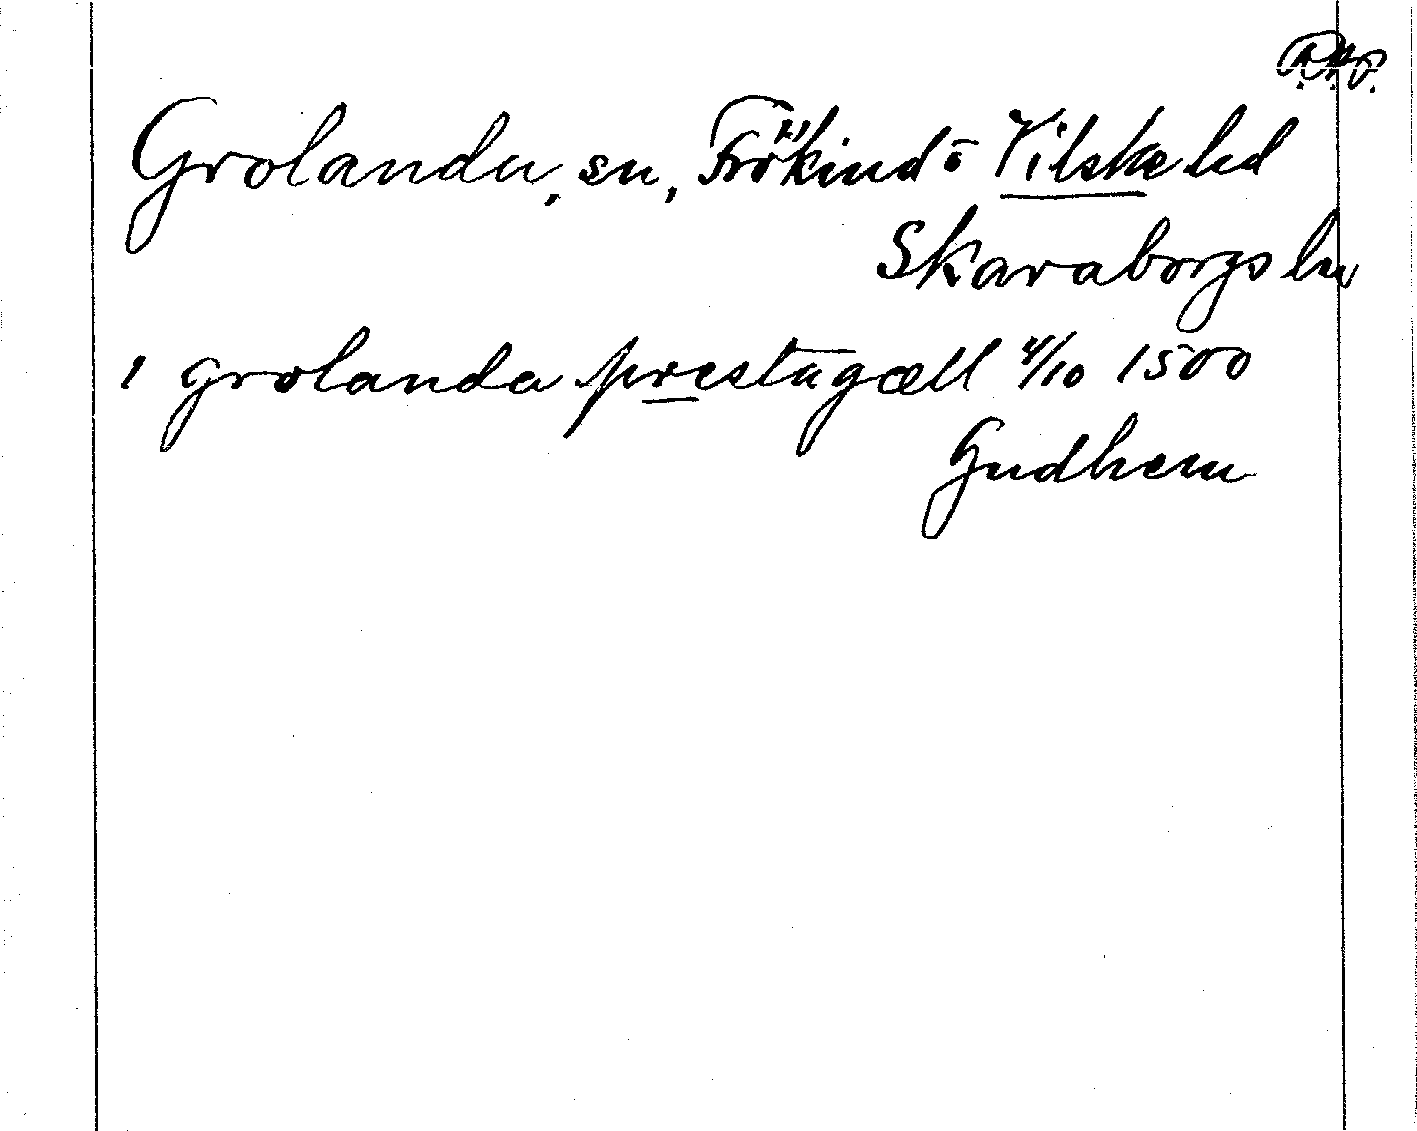 R.A.P.
Grolanda, sn, Frökind o Vilske hd
Skaraborgs ln
i grolanda prestagæll 4/10 1500
Gudhem